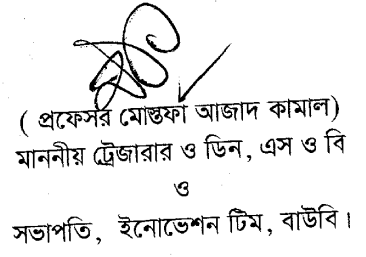 ( প্রফেসর মোস্তফা আজাদ কামাল)
মাননীয় ট্রেজারার ও ডিন, এস ও বি
ও
সভাপতি, ইনোভেশন টিম, বাউবি।